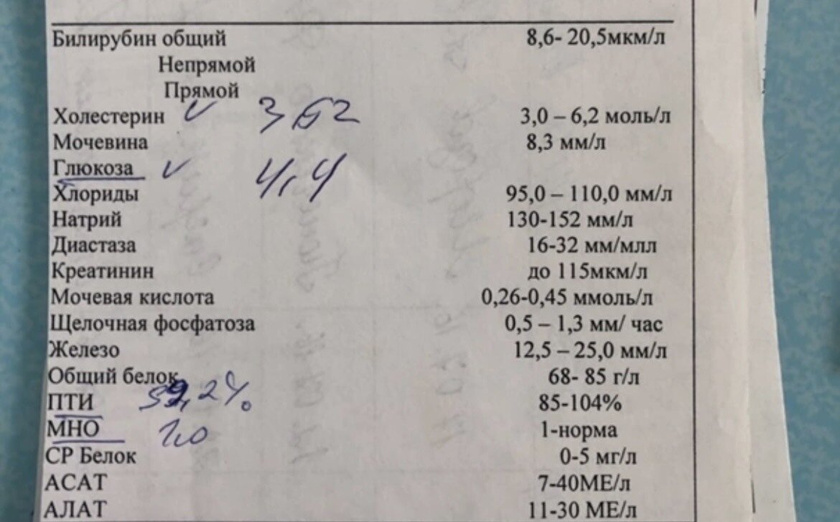 Билирубин общий 8,6- 20,5мкм/л
Непрямой
Прямой
Холестерин 3,0 – 6,2 моль/л
Мочевина 8,3 мм/л
Глюкоза 4,4
Хлориды 95,0 – 110,0 мм/л
Натрий 130-152 мм/л
Диастаза 16-32 мм/млл
Креатинин до 115мкм/л
Мочевая кислота 0,26-0,45 ммоль/л
Щелочная фосфатоза 0,5 – 1,3 мм/ час
Железо 12,5 – 25,0 мм/л
Общий белок 68- 85 г/л
ПТИ 85-104%
МНО 1-норма
СР Белок 0-5 мг/л
АСАТ 7-40МЕ/л
АЛАТ 11-30 МЕ/л